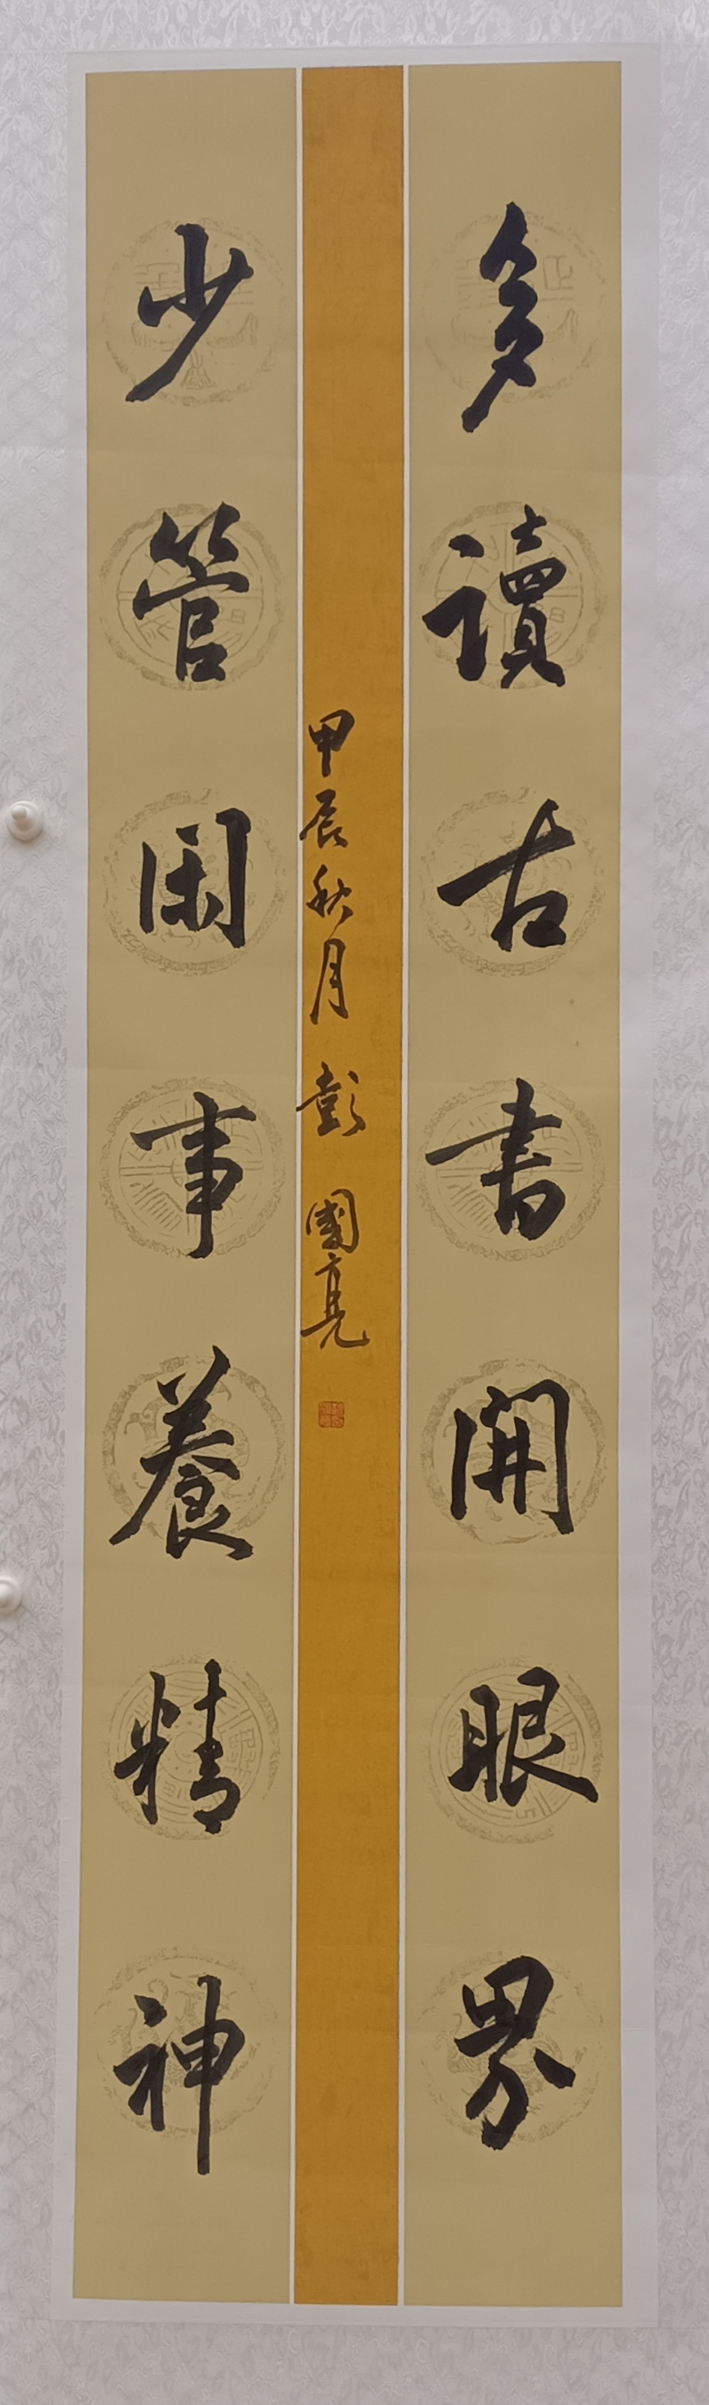 多讀古書開眼界
少管闲事養精神
甲辰秋月 彭國亮